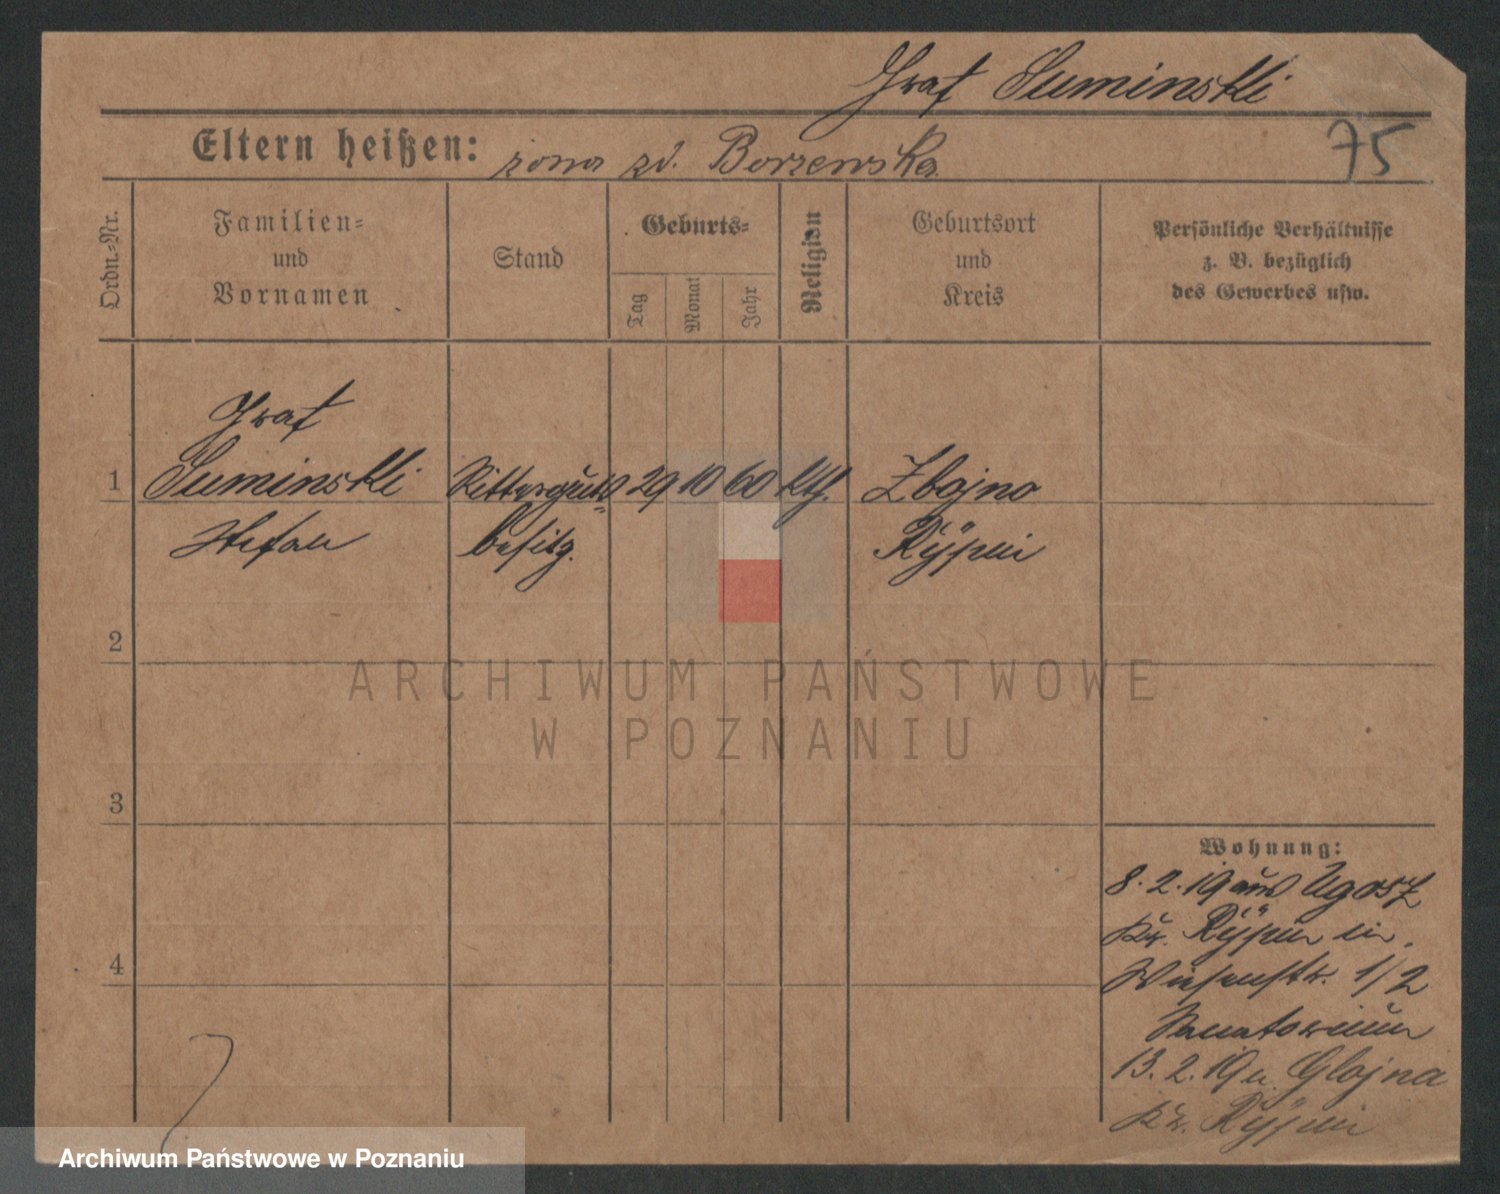 Graf Suminski
Eltern heißen: żona zd. Borzewska
75
Ordn.-Nr.
Familien-
und
Vornamen
Stand
Geburts-
Tag
Monat
Jahr
Religion
Geburtsort
und
Kreis
Persönliche Verhältnisse
z. B. bezüglich
des Gewerbes usw.
Graf
1 Suminski Ritterguts 29 10 60 kth. Zbojno
Stefan besitz. Rÿpin
2
3
4
Wohnung:
8.2.19 aus Ugosz
Kr. Rÿpin in
Wiesenstr. 1/2
Sanatorium
13.2.19 n.
Kr. Rÿpin
ARCHIWUM PAŃSTWOWE
W POZNANIU
Archiwum Państwowe w Poznaniu